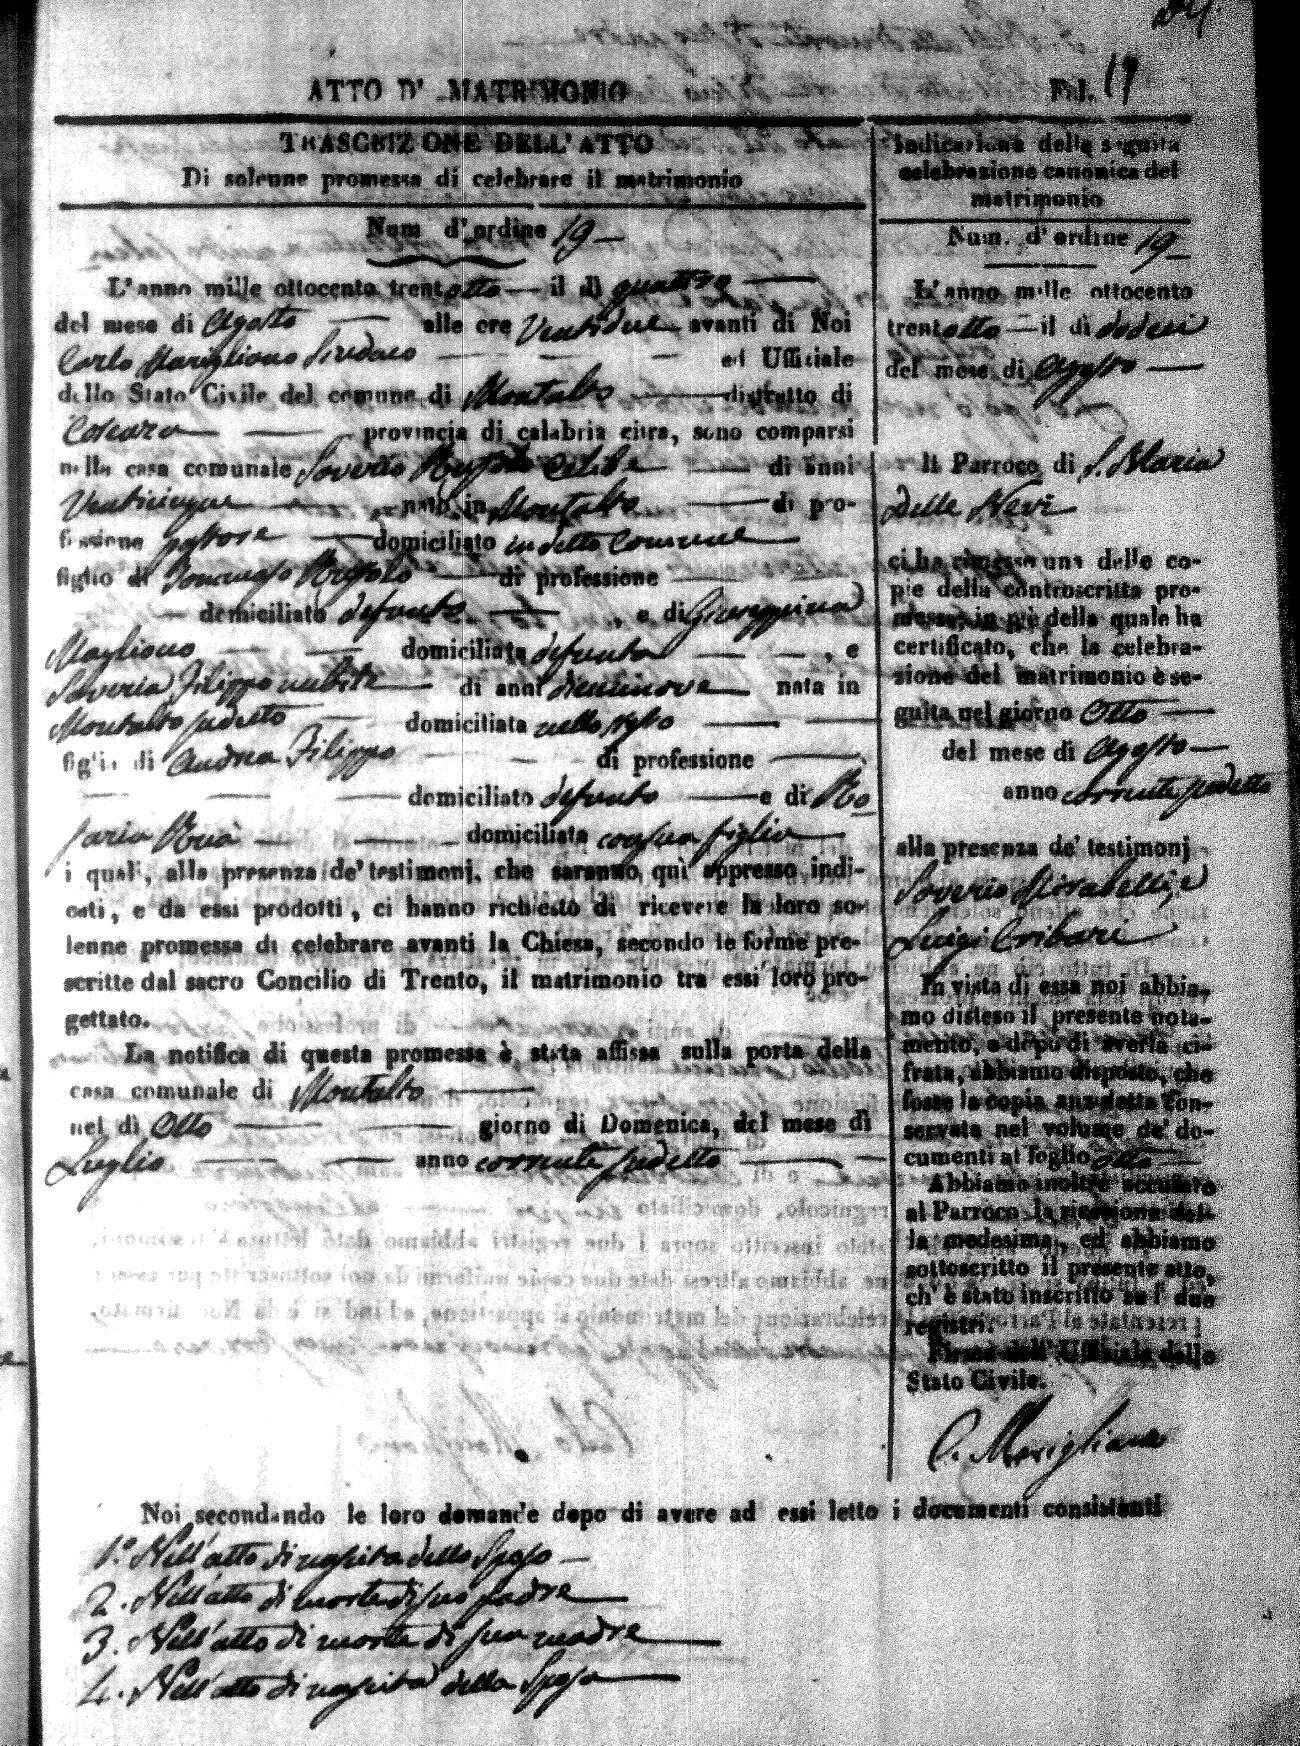 ATTO D' MATRIMONIO Fol. 19
TRASCRIZIONE DELL'ATTO
Di solenne promessa di celebrare il matrimonio
Num d'ordine 19
L'anno mille ottocento trentotto il dì quattro
del mese di Agosto alle ore Ventidue avanti di Noi
Carlo Marigliano Sindaco ed Ufficiale
dello Stato Civile del comune di Montalto distretto di
Cosenza provincia di calabria citra, sono comparsi
nella casa comunale Saverio celibe di anni
Venticinque nato in Montalto di pro-
fessione domiciliato in detto Comune
figlio di di professione
domiciliato defunto , e di Giuseppina
Magliano domiciliata defunta , e
Saveria Filippo nubile di anni diecinove nata in
Montalto sudetto domiciliata nello stesso
figlia di Andrea Filippo di professione
domiciliato defunto e di Ro
saria Ruà domiciliata con sua figlia
i quali, alla presenza de' testimonj, che saranno quì appresso indi-
cati, e da essi prodotti, ci hanno richiesto di ricevere la loro so-
lenne promessa di celebrare avanti la Chiesa, secondo le forme pre-
scritte dal sacro Concilio di Trento, il matrimonio tra essi loro pro-
gettato.
La notifica di questa promessa è stata affissa sulla porta della
casa comunale di Montalto
nel dì Otto giorno di Domenica, del mese di
Luglio anno corrente sudetto
Indicazione della seguita
celebrazione canonica del
matrimonio
Num. d'ordine 19
L'anno mille ottocento
trentotto il dì dodeci
del mese di Agosto
Il Parroco di S. Maria
delle Nevi
ci ha rimesso una delle co-
pie della controscritta pro-
messa, in piè della quale ha
certificato, che la celebra-
zione del matrimonio è se-
guita nel giorno Otto
del mese di Agosto
anno corrente sudetto
alla presenza de' testimonj
Saverio Mirabelli, e
Luigi Cribari
In vista di essa noi abbia-
mo disteso il presente nota-
mento, e dopo di averla ci-
frata, abbiamo disposto, che
fosse la copia anzidetta con-
servata nel volume de' do-
cumenti al foglio otto
Abbiamo inoltre accusato
al Parroco la ricezione del-
la medesima, ed abbiamo
sottoscritto il presente atto,
ch' è stato inscritto su i due
registri.
Firma dell' Uffiziale dello
Stato Civile.
C. Marigliano
Noi secondando le loro domande dopo di avere ad essi letto i documenti consistenti
1.° Nell'atto di nascita dello Sposo
2. Nell'atto di morte di suo padre
3. Nell'atto di morte di sua madre
4. Nell'atto di nascita della Sposa